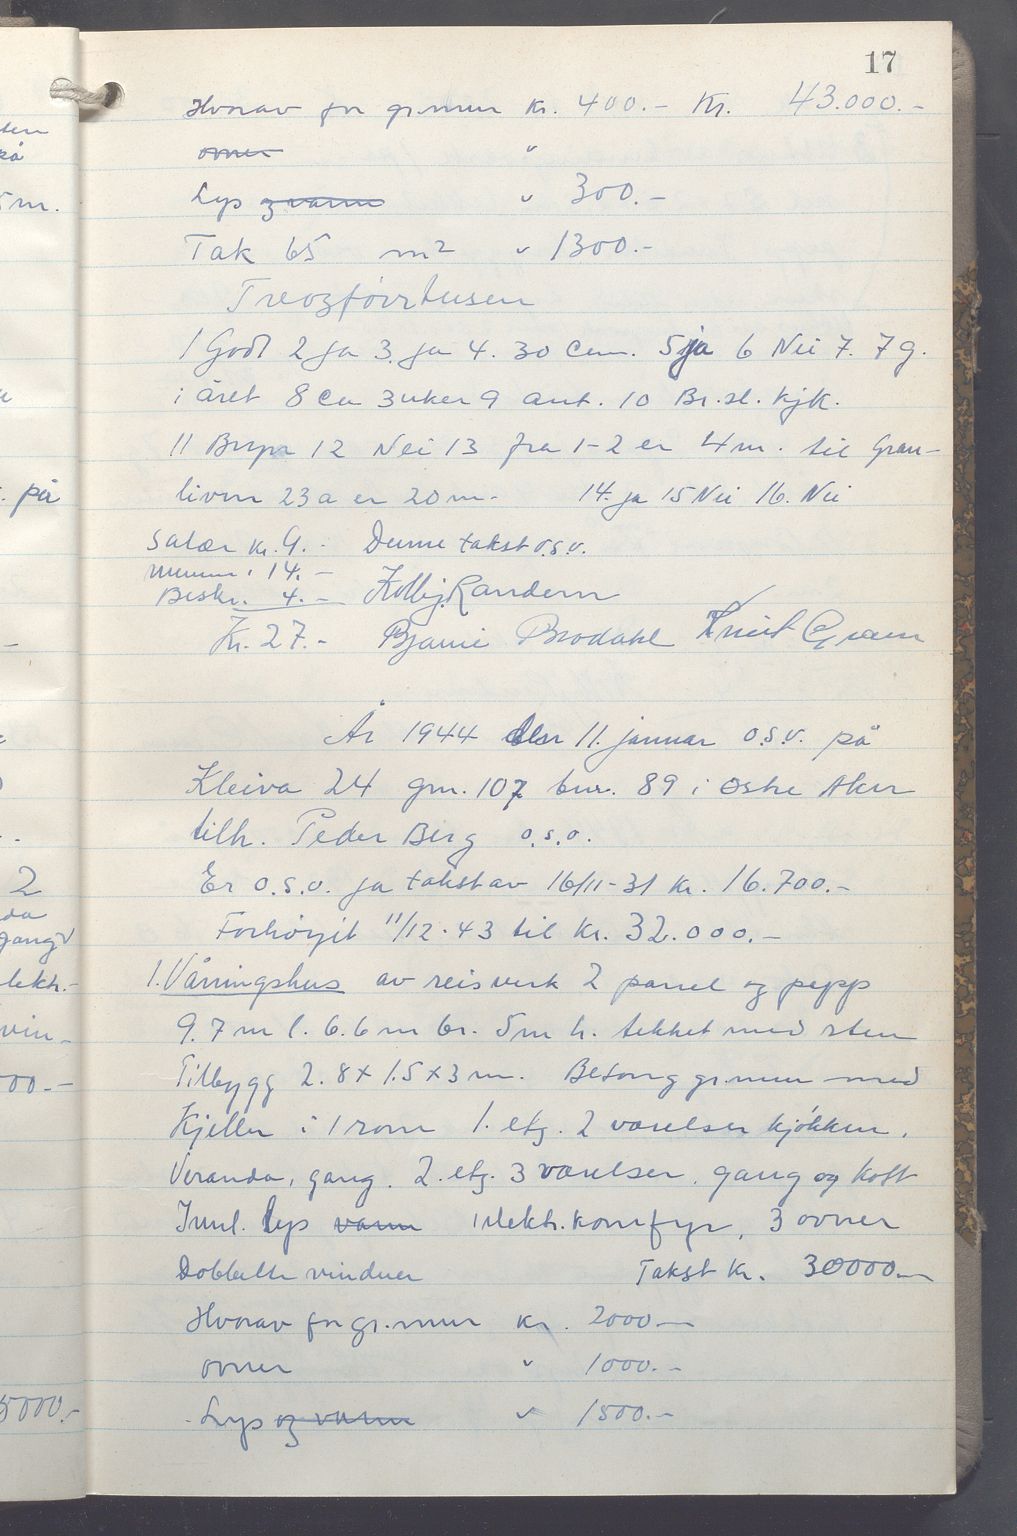 17
Hvorav for gr.mur kr. 400.- Kr. 43.000.-
ovner "
Lys og vann " 300.-
Tak 65 m2 " 1300.-
1 Godt 2 ja 3. ja 4. 30 cm. 5 ja 6 Nei 7. 7 g.
i året 8 ca 3 uker 9 ant. 10 Br.sl. kjk.
11 12 Nei 13 fra 1-2 er 4 m. til Gran-
livn 23a er 20 m. 14. ja 15 Nei 16. Nei
Salær kr. 9.- Denne takst o.s.v.
14.-
Beskr. 4.- Kolbj. Randem
Kr. 27.- Bjarne Brodahl Knut Gram
År 1944 den 11. januar o.s.v. på
Kleiva 24 gnr. 107 bnr. 89 i Østre Aker
tilh. Peder Berg o.s.v.
Er o.s.v. ja takst av 16/11-31 kr. 16.700.-
Forhøyet 11/12-43 til kr. 32.000.-
1. Våningshus av reisverk 2 panel og papp
9.7 m l. 6.6 m br. 5 m h. tekket med sten
Tilbygg 2.8 x 1.5 x 3 m. Betong gr.mur med
Kjeller i 1 rom 1. etg. 2 værelser kjøkken,
Veranda, gang. 2. etg. 3 værelser, gang og loft
Innl. lys vann 1 elektr. komfyr, 3 ovner
Dobbelte vinduer Takst kr. 30000.-
Hvorav for gr.mur kr. 2000.-
ovner " 1000.-
Lys og vann " 1500.-
ten
på
5 m.
. på
2
da
gang
lektr.-
vin-
00.-
5000.-